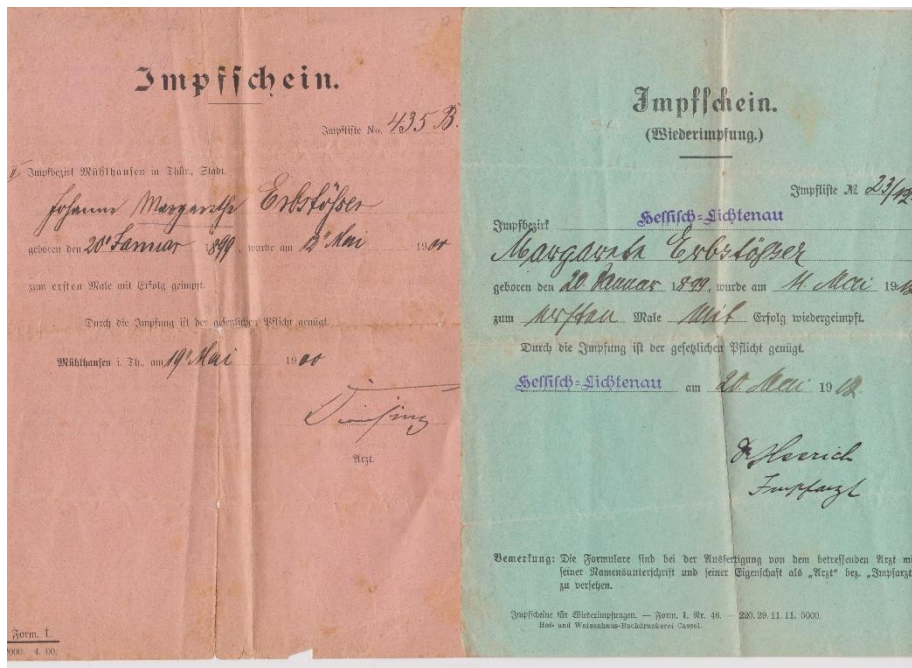 Impfschein.
Impfliste No. 435 B.
Impfbezirk Mühlhausen in Thür., Stadt.
Johanne Margarethe Erbstößer
geboren den 20t Januar 1899, wurde am 12t Mai 1900
zum ersten Male mit Erfolg geimpft.
Durch die Impfung ist der gesetzlichen Pflicht genügt.
Mühlhausen i. Th., am 19t Mai 1900
Arzt.
Form. I.
4. 00.
Impfschein.
(Wiederimpfung.)
Impfliste № 23/12
Impfbezirk Hessisch-Lichtenau
Margarete Erbstößer
geboren den 20. Januar 1899, wurde am 11. Mai 19
zum ersten Male mit Erfolg wiedergeimpft.
Durch die Impfung ist der gesetzlichen Pflicht genügt.
Hessisch-Lichtenau am 20. Mai 1912.
Dr.
Impfarzt
Bemerkung: Die Formulare sind bei der Ausfertigung von dem betreffenden Arzt
seiner Namensunterschrift und seiner Eigenschaft als „Arzt“ bez. „Impfarzt
zu versehen.
Impfscheine für Wiederimpfungen. — Form. I, Nr. 46. — 220. 29. 11. 11. 5000.
Hof- und Waisenhaus-Buchdruckerei Cassel.